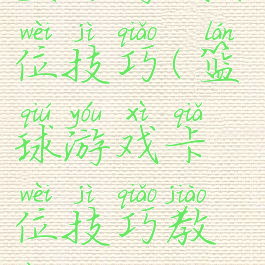 wèi jì qiǎo lán
位技巧(篮
qiú yóu xì qiǎ
球游戏卡
wèi jì qiǎo jiào
位技巧教